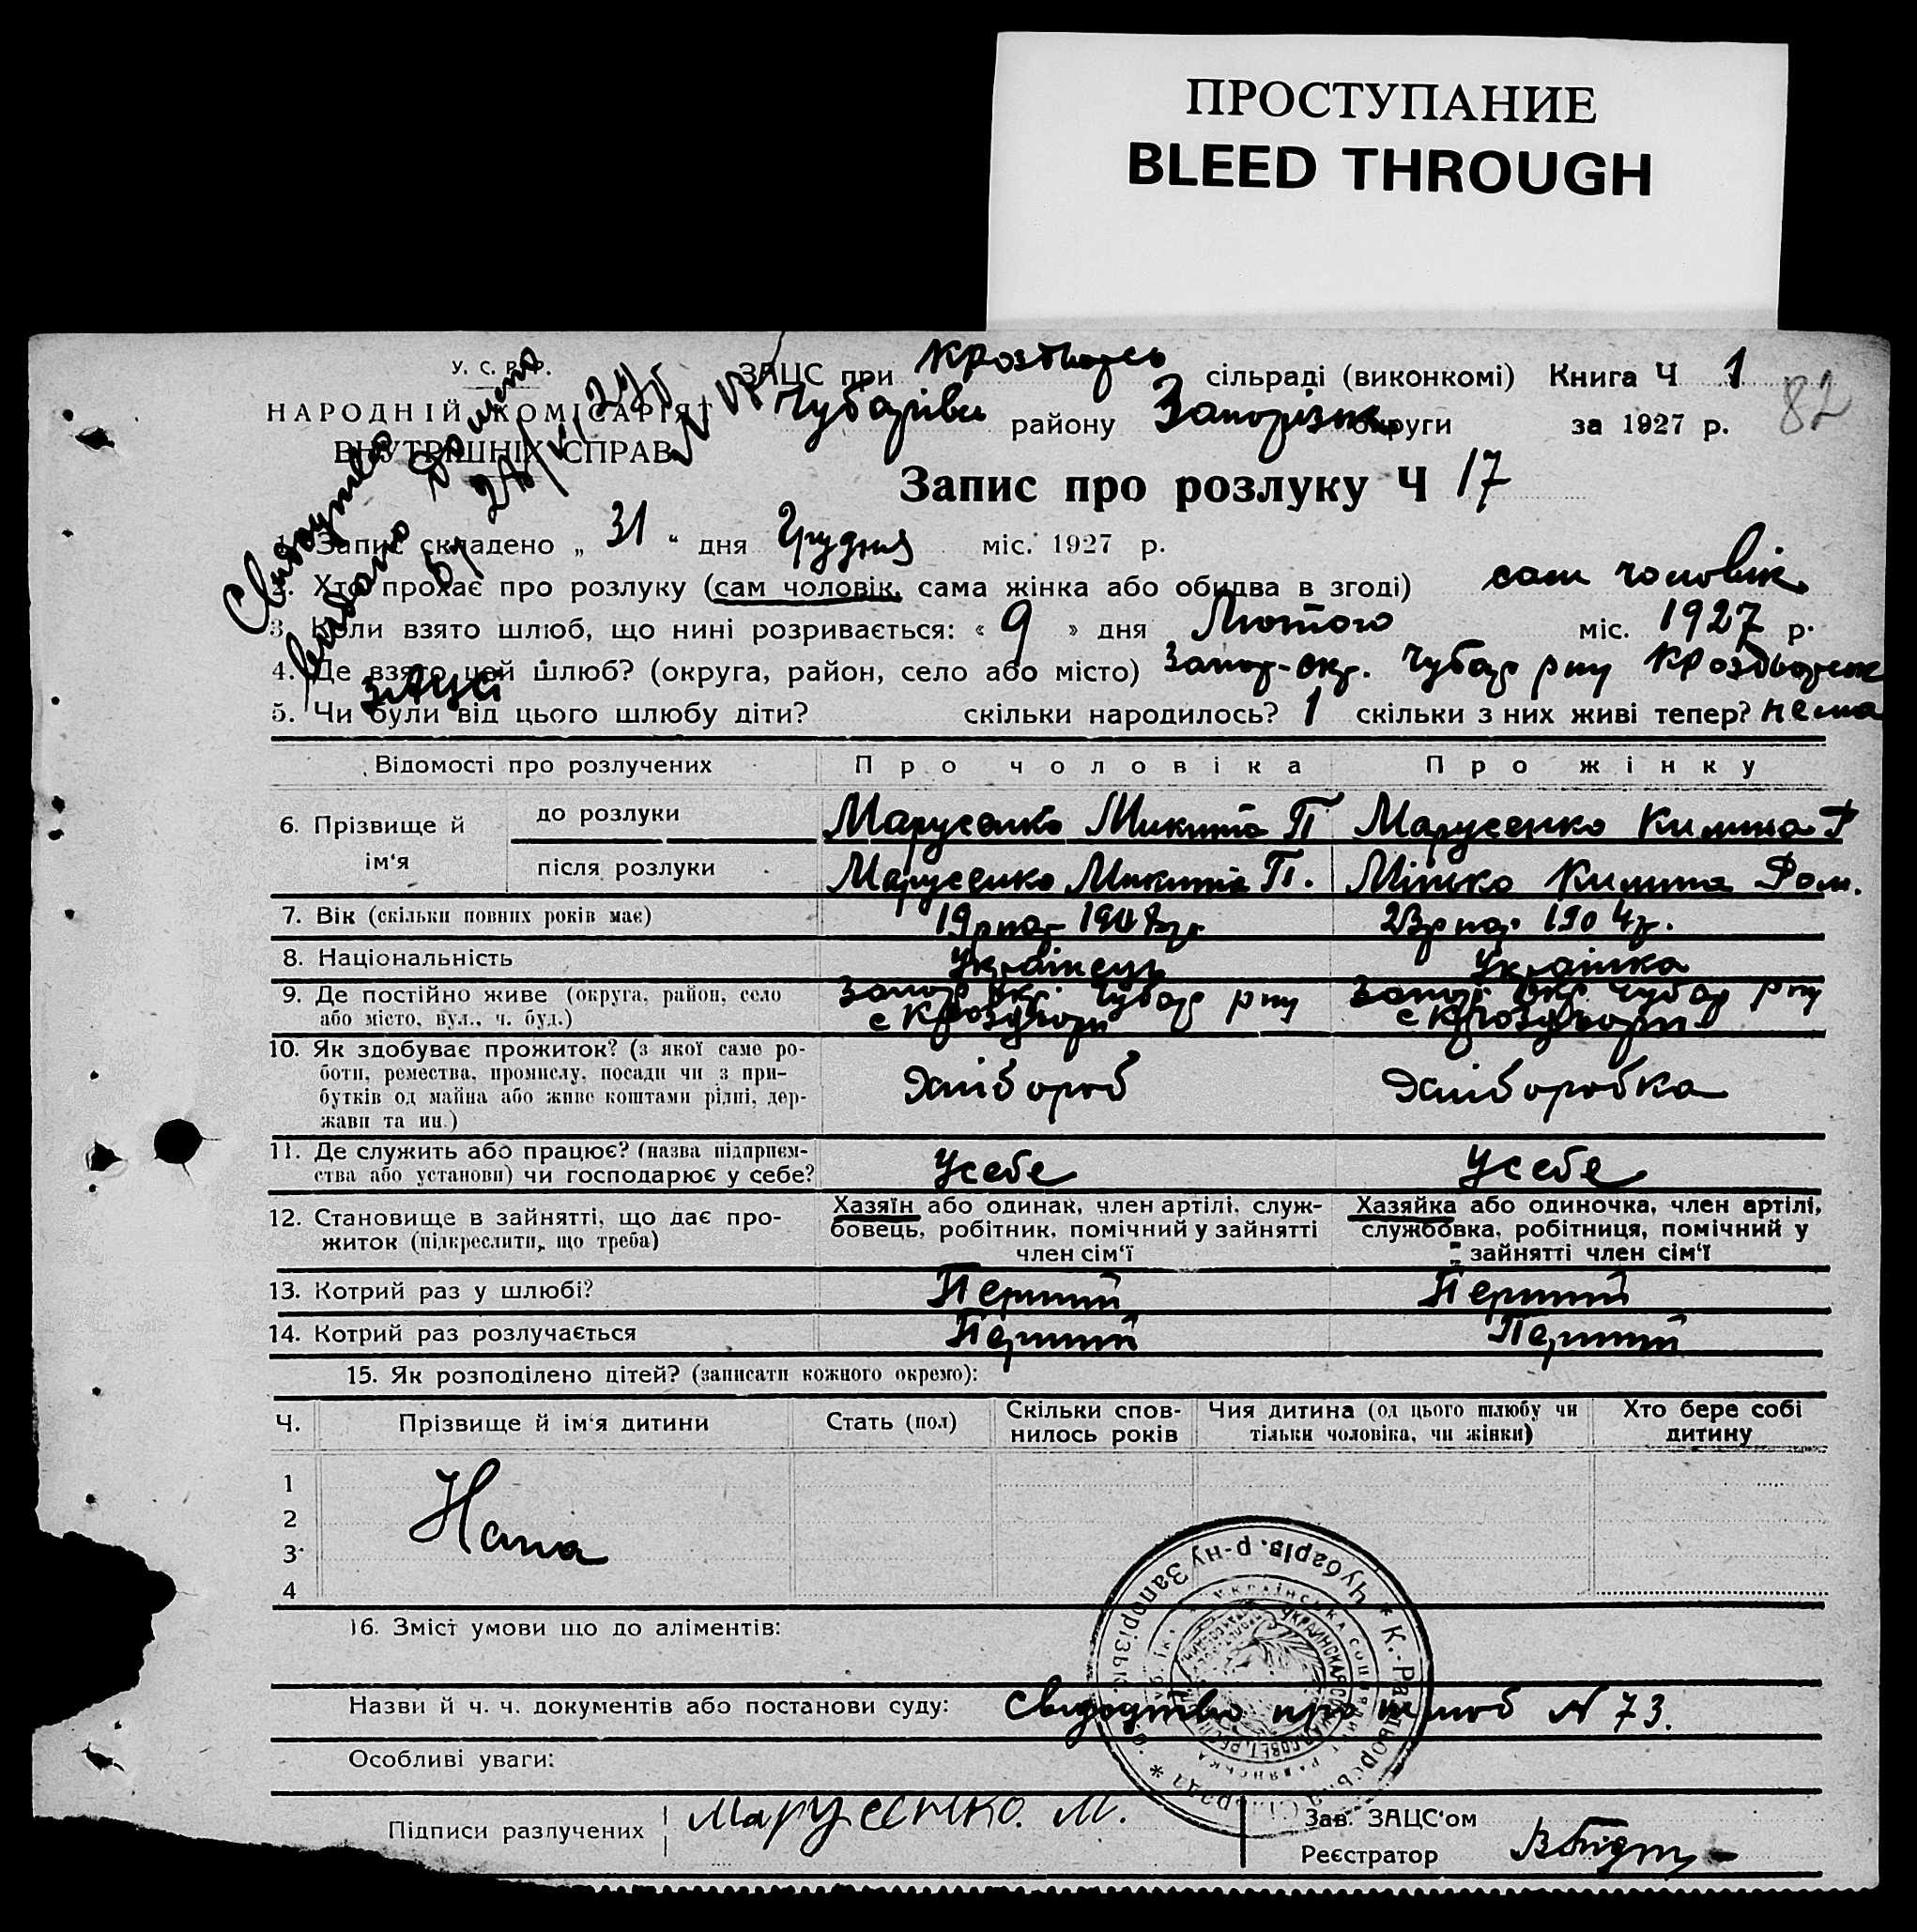 ПРОСТУПАНИЕ
BLEED THROUGH
У. С. Р. Р.
НАРОДНІЙ КОМІСАРІЯТ
ВНУТРІШНІХ СПРАВ
ЗАЦС при сільраді (виконкомі) Книга Ч 1
82
району округи за 1927 р.
Запис про розлуку Ч 17
1. Запис складено „ 31 “ дня Грудня міс. 1927 р.
2. Хто прохає про розлуку (сам чоловік, сама жінка або обидва в згоді) сам чоловік
3. Коли взято шлюб, що нині розривається: « 9 » дня Лютого міс. 1927 р.
4. Де взято цей шлюб? (округа, район, село або місто) Запор-окр. Чубар рну
5. Чи були від цього шлюбу діти? скільки народилось? 1 скільки з них живі тепер? нема
Відомості про розлучених Про чоловіка Про жінку
6. Прізвище й ім‘я
до розлуки Марусенко Микита П Марусенко Килина Р
після розлуки Марусенко Микита П. Мінько Килина Ром.
7. Вік (скільки повних років має) 19 23
8. Національність Українець Українка
9. Де постійно живе (округа, район, село Запор окр. Чубар рну Запор окр. Чубар рну
або місто, вул., ч. буд.)
10. Як здобуває прожиток? (з якої саме ро-
боти, ремества, промислу, посади чи з при-
бутків од майна або живе коштами рідні, дер-
жави та ин.) Хлібороб Хліборобка
11. Де служить або працює? (назва підприєм-
ства або установи) чи господарює у себе? Усебе Усебе
12. Становище в зайнятті, що дає про-
житок (підкреслити, що треба)
Хазяїн або одинак, член артілі, служ-
бовець, робітник, помічний у зайнятті
член сім‘ї
Хазяйка або одиночка, член артілі,
службовка, робітниця, помічний у
зайнятті член сім‘ї
13. Котрий раз у шлюбі? Перший Перший
14. Котрий раз розлучається Перший Перший
15. Як розподілено дітей? (записати кожного окремо):
Ч. Прізвище й ім‘я дитини Стать (пол) Скільки спов-
нилось років Чия дитина (од цього шлюбу чи
тільки чоловіка, чи жінки) Хто бере собі
дитину
1
2
3
4
16. Зміст умови що до аліментів:
Назви й ч. ч. документів або постанови суду: Свідоцтво про шлюб N 73.
Особливі уваги:
Підписи разлучених Марусенко. М.
Зав. ЗАЦС‘ом
Реєстратор